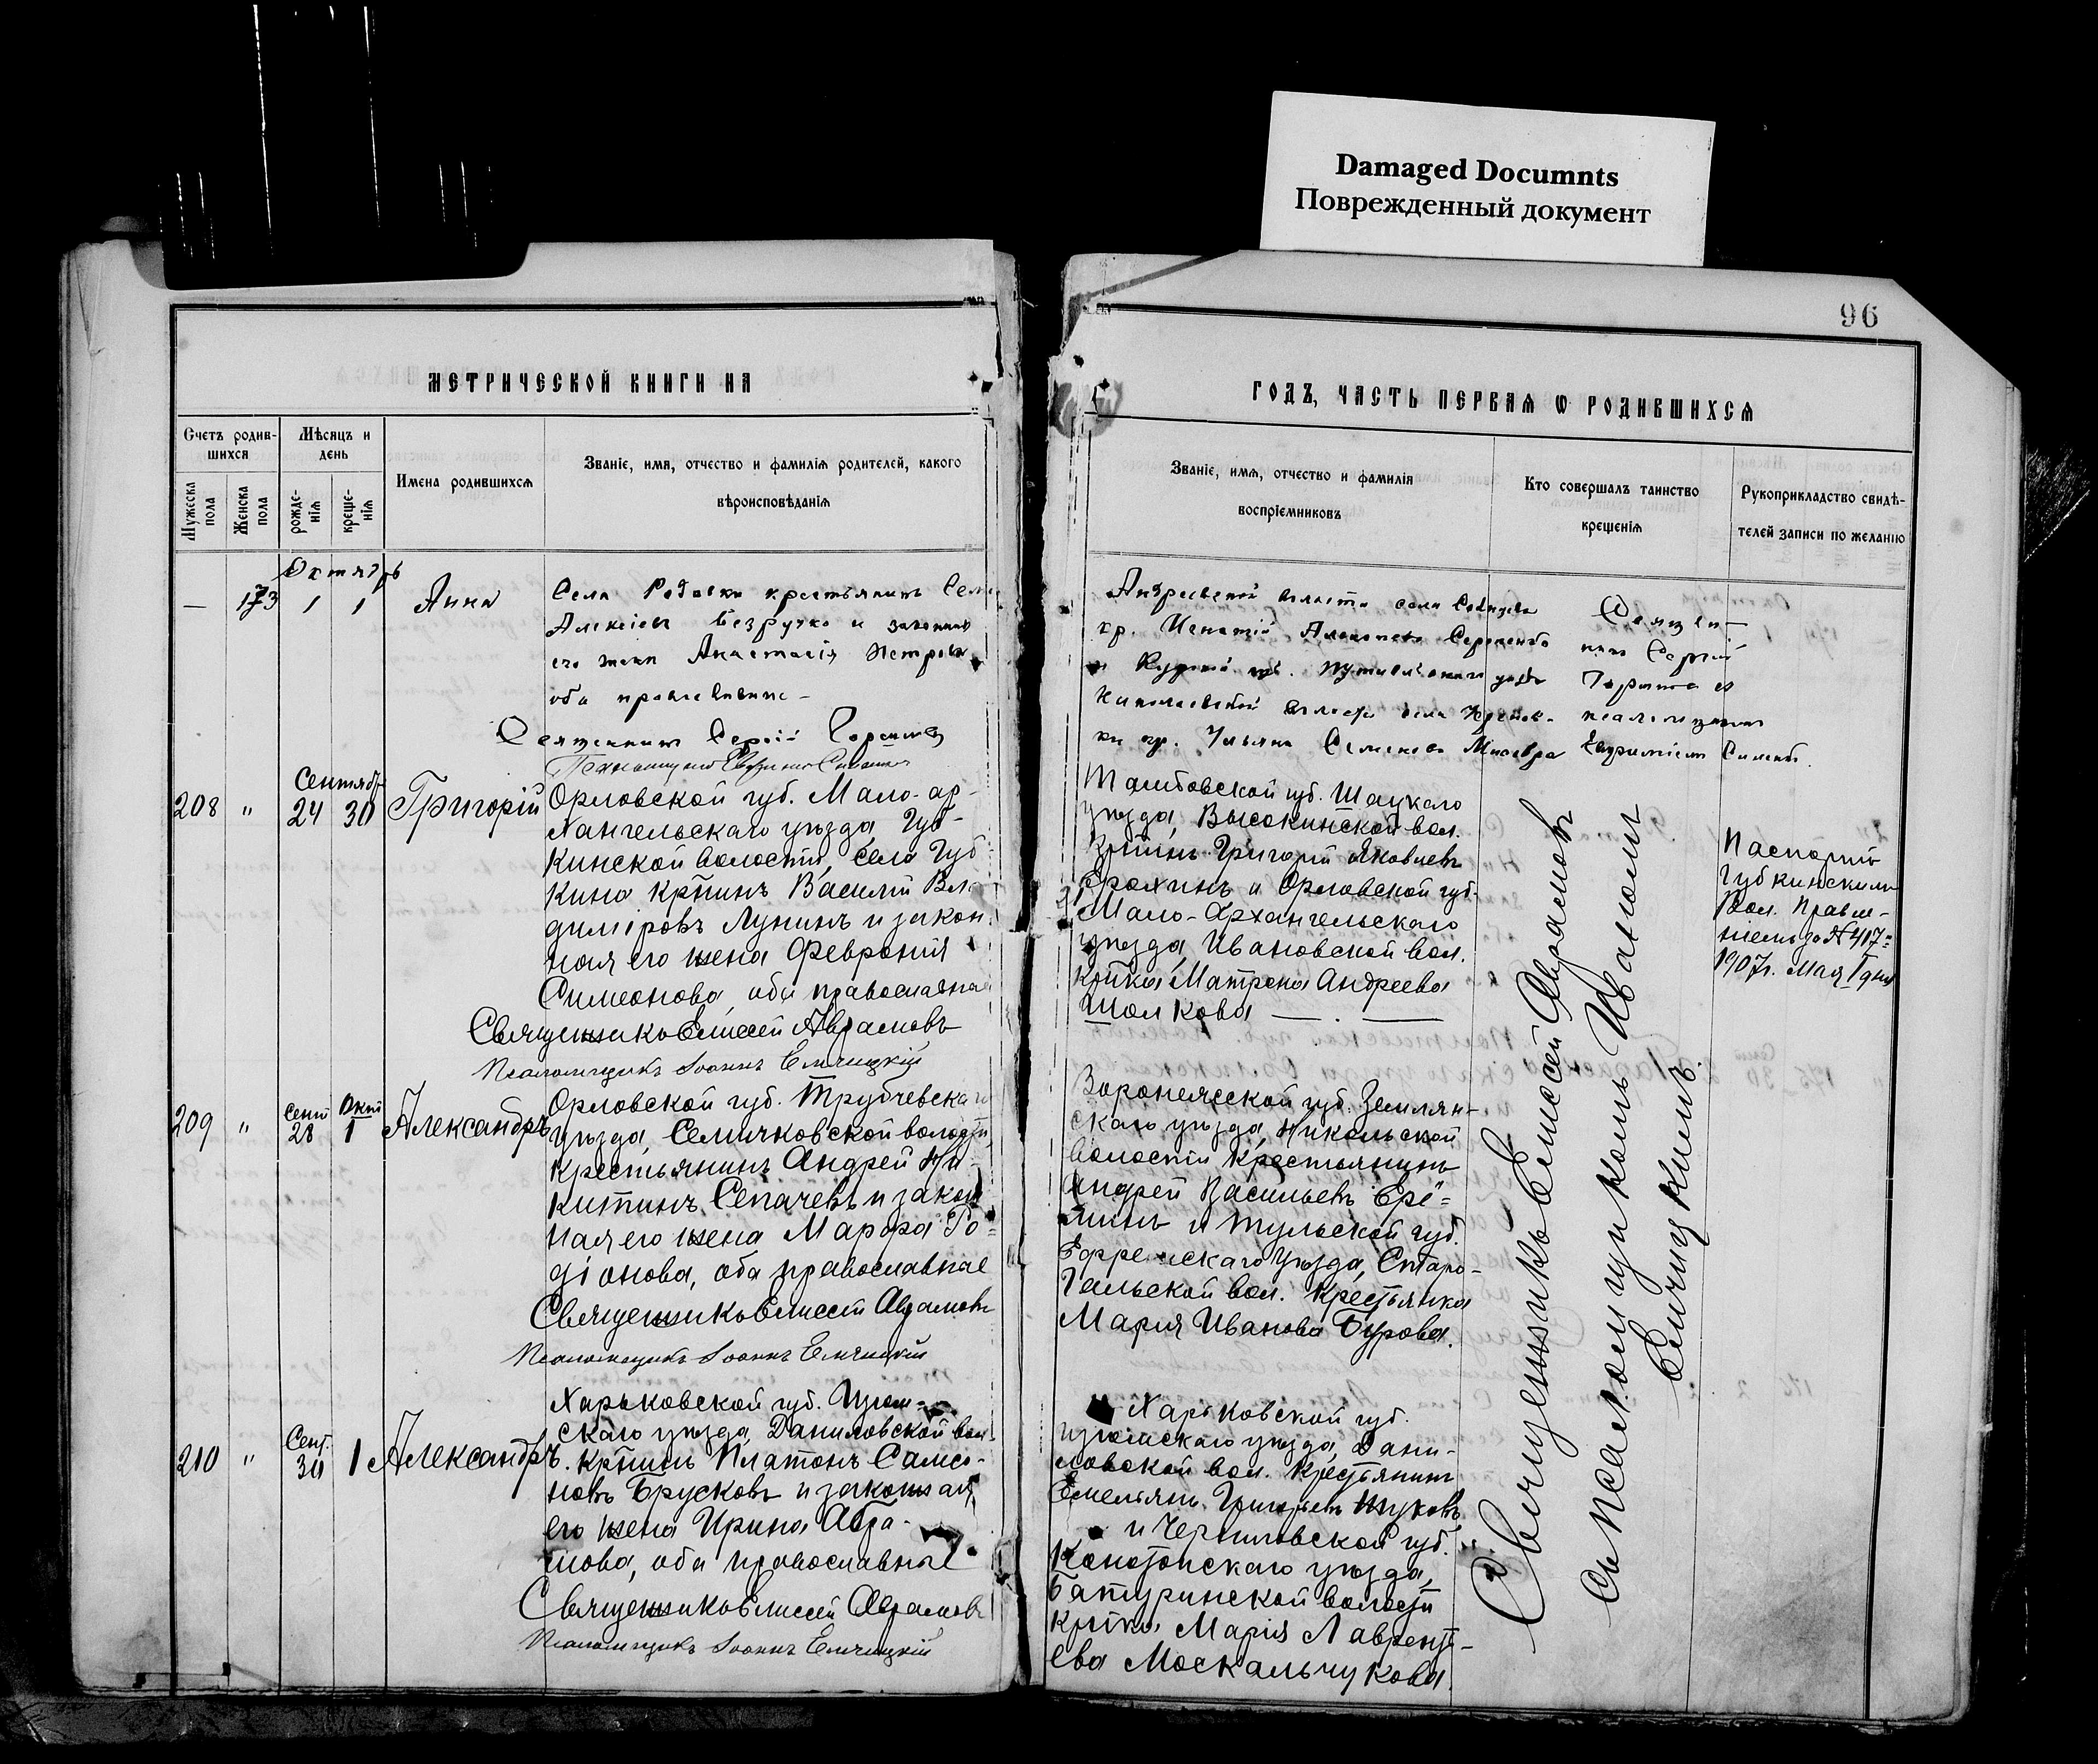 Damaged Documnts
Поврежденный документ
96
МЕТРИЧЕСКОЙ КНИГИ НА
ГОДЪ, ЧАСТЬ ПЕРВАЯ Ѡ РОДИВШИХСЯ
Счетъ родив-
шихся
Мужеска
пола
Женска
пола
Мѣсяцъ и
день
рожде-
нія
креще-
нія
Имена родившихся
Званіе, имя, отчество и фамилія родителей, какого
вѣроисповѣданія
Званіе, имя, отчество и фамилія
воспріемниковъ
Кто совершалъ таинство
крещенія
Рукоприкладство свидѣ-
телей записи по желанію
Октябрь
— 173 1 1 Анна
Села крестьянинъ
Алексіевъ Безручко и законная
его жена Анастасія Петрова
оба православные
Священникъ Сергій
Андреевской волости села
кр. Игнатій
и Курской губ. Путивльскаго уѣзда
Николаевской волости села
кр. Ульяна Семенова
Священ-
никъ Сергій
псаломщикомъ
Сентябрь
208 " 24 30 Григорій
Орловской губ. Мало-ар-
хангельскаго уѣзда, Губ-
кинской волости, села Губ
кина крт̃инъ Василій Вла
диміровъ Лунинъ и закон
ная его жена Февронія
Симеонова, оба православные
Священникъ Елисей Авраамовъ
Псаломщикъ Іоаннъ Емчицкій
Тамбовской губ. Шацкаго
уѣзда, Высокинской вол.
крт̃инъ Григорій Яковлевъ
Ерохинъ и Орловской губ.
Мало-Архангельскаго
уѣзда, Ивановской вол.
крт̃ка Матрена Андреева
Шолкова —.—
Паспортъ
Губкинскаго
Вол. Правле-
нія за № 417:
1907 г. Мая 1 дня
209 " Сент 28 Окт 1 Александръ
Орловской губ. Трубчевскаго
уѣзда, Семячковской волости
крестьянинъ Андрей Ни-
китинъ Сепачевъ и закон
ная его жена Марфа Ро-
діонова, оба православные
Священникъ Елисей Авраамовъ
Псаломщикъ Іоаннъ Емчицкій
Воронежской губ. Землян-
скаго уѣзда, Никольской
волости крестьянинъ
Андрей Васильевъ Ерё-
минъ и Тульской губ.
Ефремскаго уѣзда, Старо-
Гальской вол. крестьянка
Марія Иванова Бурова.
210 " Сент. 30 1 Александръ
Харьковской губ. Изюм-
скаго уѣзда, Даниловской вол.
крт̃инъ Платонъ Самсо-
новъ Брусковъ и законная
его жена Ирина Абра-
мова, оба православные
Священникъ Елисей Авраамовъ
Псаломщикъ Іоаннъ Емчицкій
Харьковской губ.
Изюмскаго уѣзда, Дани-
ловской вол. крестьянинъ
Емельянъ Григорьевъ Жуковъ
и Черниговской губ.
Конотопскаго уѣзда,
Батуринской волости
крт̃ка Марія Лаврентъ-
ева Москальчукова.
Священникъ Елисей Авраамовъ
съ псаломщикомъ Іоанномъ
Емчицкимъ.